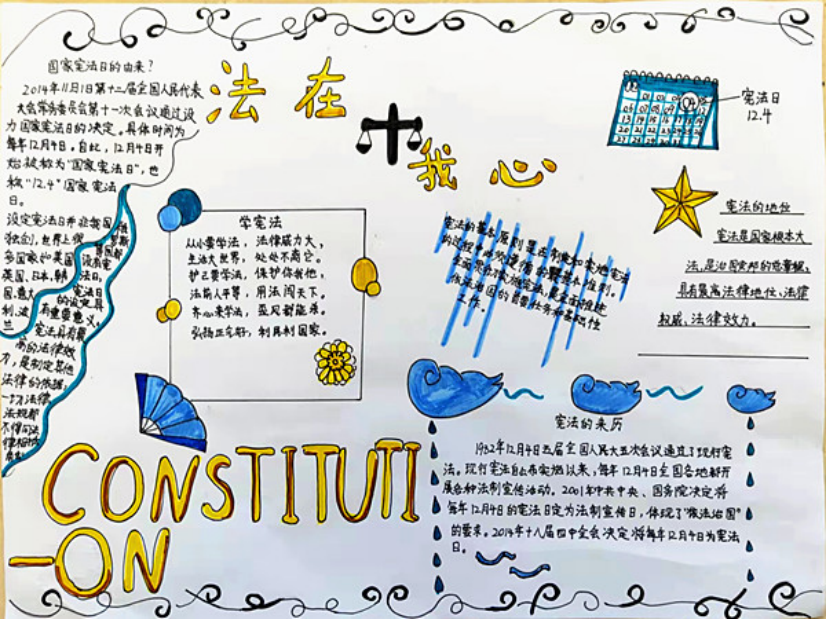 国家宪法日的由来？
2014年11月1日第十二届全国人民代表
大会常务委员会第十一次会议通过设
力国家宪法日的决定。具体时间为
每年12月4日。自此，12月4日开
始被称为"国家宪法日"，也
称"12.4"国家宪法
日。
设定宪法日并非我国
独创，世界上很
多国家如美国
英国、日本、韩
国、意大
利、波
兰
俄罗斯
等国都
设有宪
法日。
宪法日
的设定具
有重要意义。
宪法具有最
高的法律效
力，是制定其他
法律的依据，
一切法律
法规都
不得同法
律相抵
法在
我心
宪法日
12.4
学宪法
从小要学法，法律威力大，
生活大世界，处处不离它。
护己要学法，保护你我他，
法前人平等，用法闯天下。
齐心来学法，歪风都能杀。
弘扬正气好，利民利国家。
宪法的基本原则是在制定和实施宪法
的过程中必须遵循的最基本准则。
全面贯彻实施宪法，是全面推进
依法治国的首要任务和基础性
工作。
宪法的地位
宪法是国家根本大
法，是治国安邦的总章程，
具有最高法律地位、法律
权威、法律效力。
宪法的来历
1982年12月4日五届全国人民大五次会议通过了现行宪
法。现行宪法自公布实施以来，每年12月4日全国各地都开
展各种法制宣传活动。2001年中共中央、国务院决定将
每年12月4日的宪法日定为法制宣传日，体现了"依法治国"
的要求。2014年十八届四中全会决定将每年12月4日为宪法
日。
CONSTITUTI
-ON